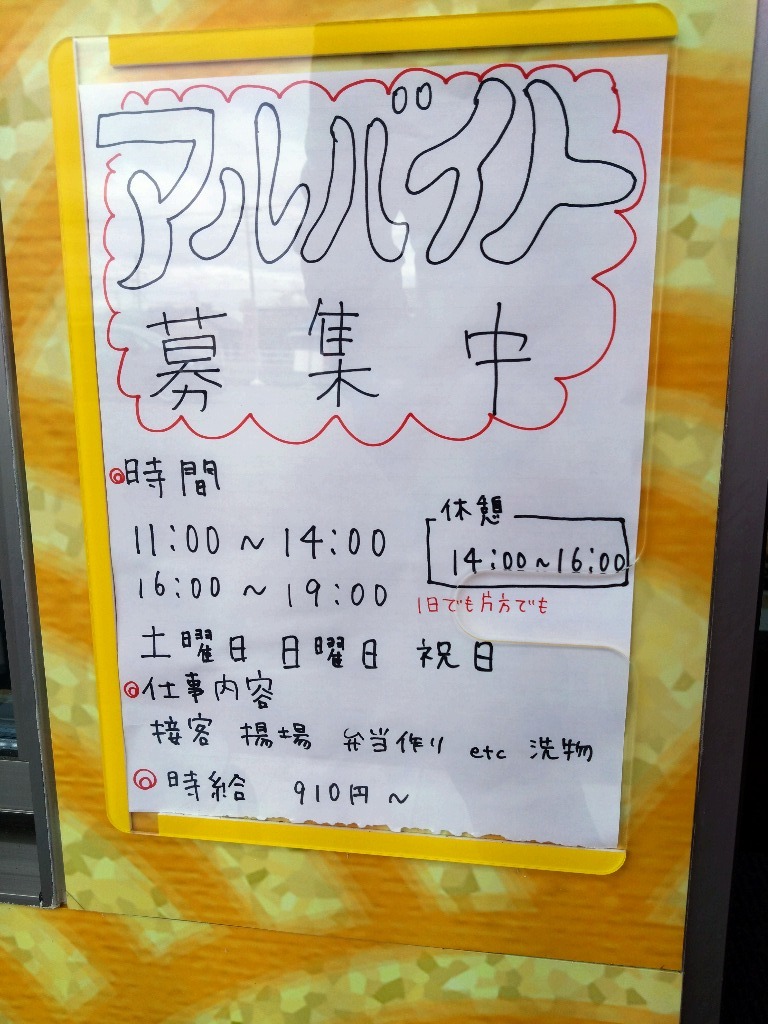 アルバイト
募集中
◎時間
11:00～14:00
16:00～19:00
休憩
14:00～16:00
1日でも片方でも
土曜日 日曜日 祝日
◎仕事内容
接客 揚場 弁当作り etc 洗物
◎時給 910円～